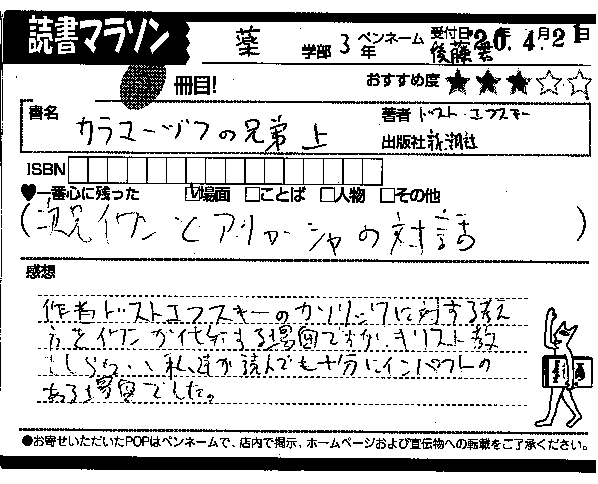 読書マラソン
薬 学部 3年 ペンネーム 後藤雲 受付日 20.4.21
冊目!
おすすめ度 ★★★☆☆
書名 カラマーゾフの兄弟 上
著者 ドストエフスキー
出版社 新潮社
ISBN
♥一番心に残った ☑場面 □ことば □人物 □その他
(次兄イワンとアリョーシャの対話)
感想
作者ドストエフスキーのカソリックに対する考え
方をイワンが代弁する場面ですが、キリスト教
をしらない私達が読んでも十分にインパクトの
ある場面でした。
●お寄せいただいたPOPはペンネームで、店内で掲示、ホームページおよび宣伝物への転載をご了承ください。